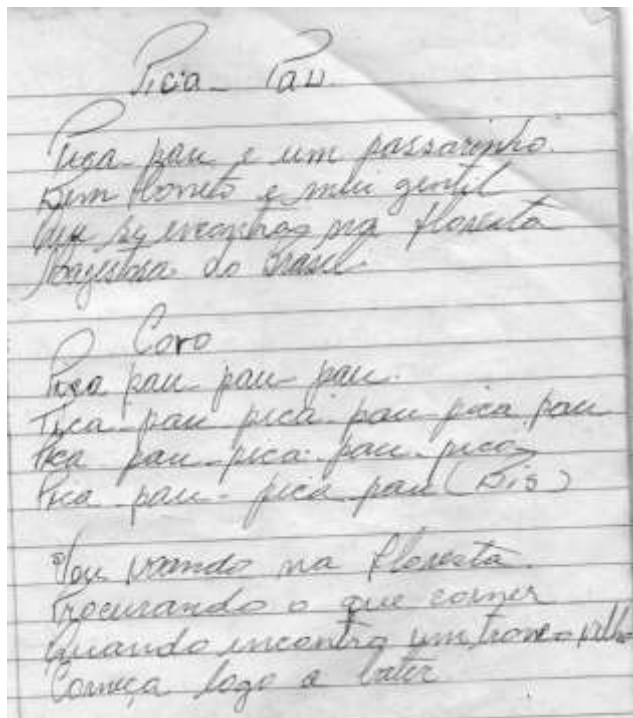 Pica - Pau
Pica pau e um passarinho
Bem bonito e mui gentil
Que se encontra na floresta
Magestosa do Brasil.
Coro
Pica pau pau pau.
Pica pau pica pau pica pau
Pica pau pica pau pica
Pica pau - pica pau (Bis)
Vou voando na floresta
Procurando o que comer
Quando encontro um tronco velho
Começa logo a bater